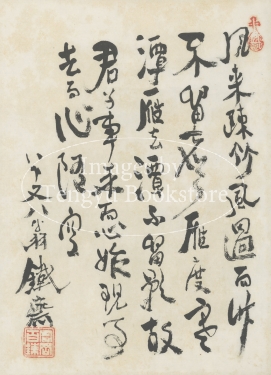 風来疎竹風過而竹
不留声雁度寒
潭雁去潭不留影故
君子事来心始現事
去而心随空
八十又八翁 鐵齋
Image by
Tengyu Bookstore